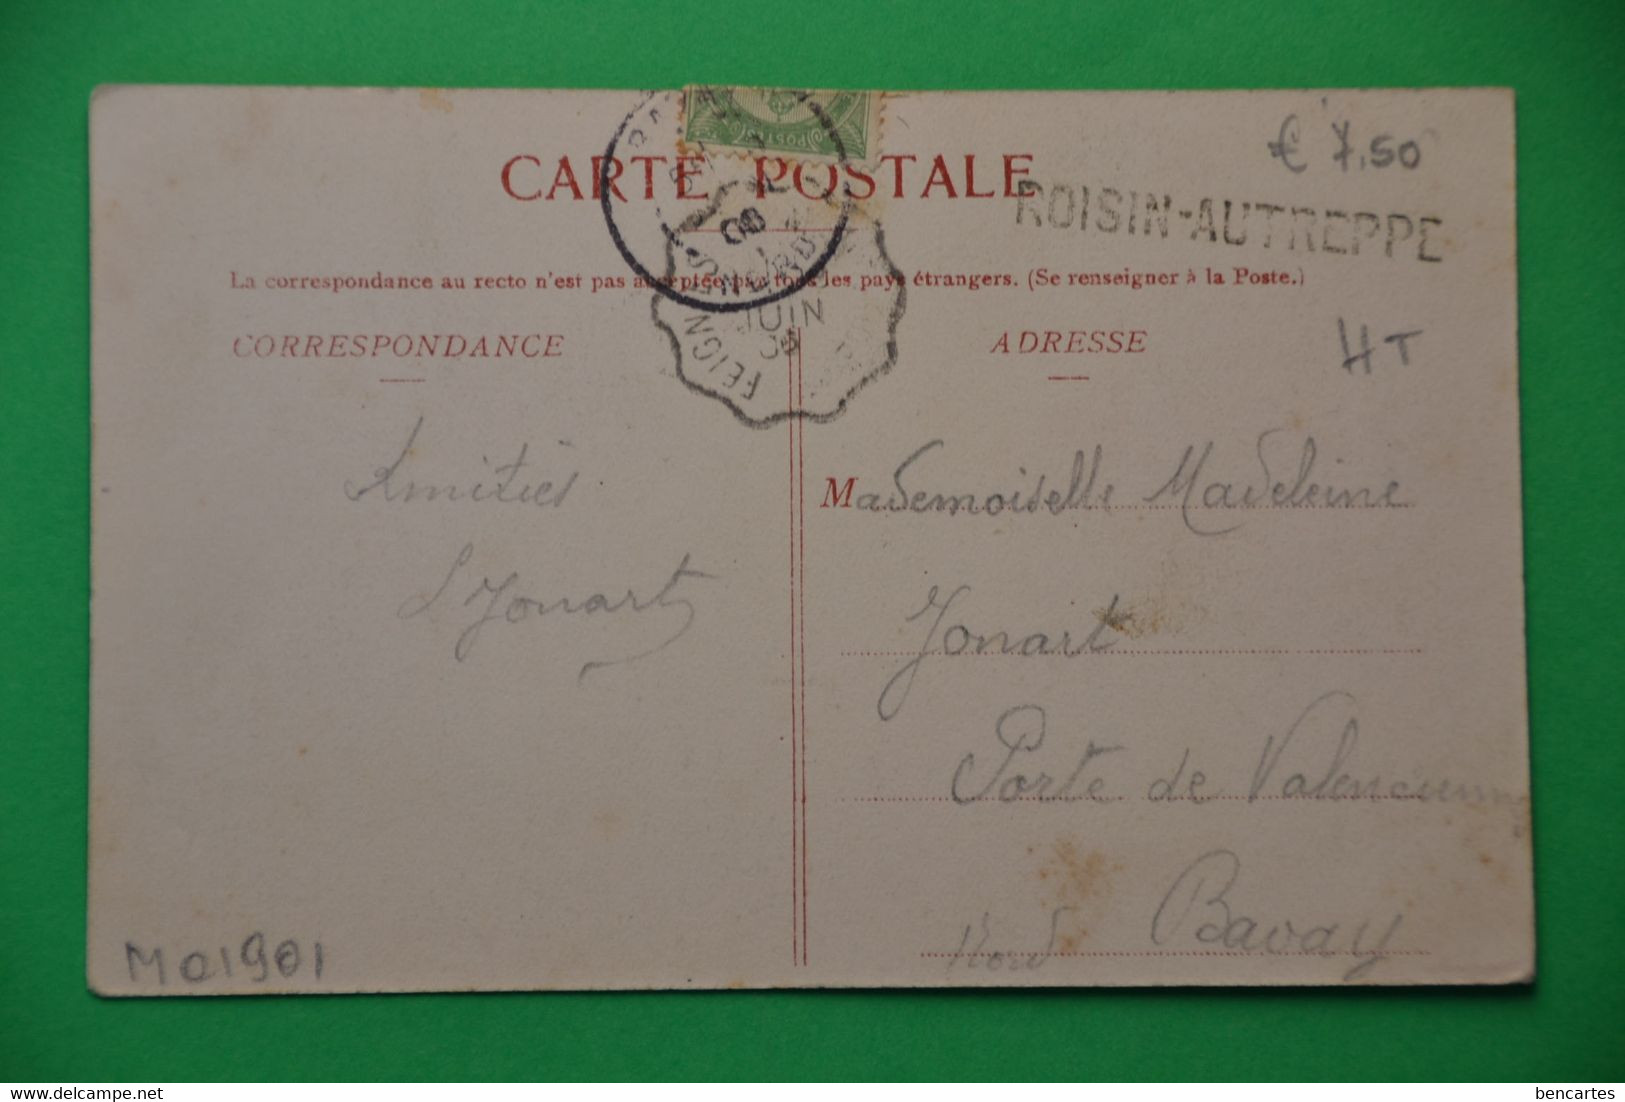 € 7,50
CARTE POSTALE
ROISIN-AUTREPPE
La correspondance au recto n'est pas acceptée par tous les pays étrangers. (Se renseigner à la Poste.)
POSTES
08
NORD
JUIN
FEIGNIES
CORRESPONDANCE
ADRESSE
HT
Amitiés
Mademoiselle Madeleine
L Jonart
Jonart
Porte de Valencienn
Nord Bavay
M01901
bencartes